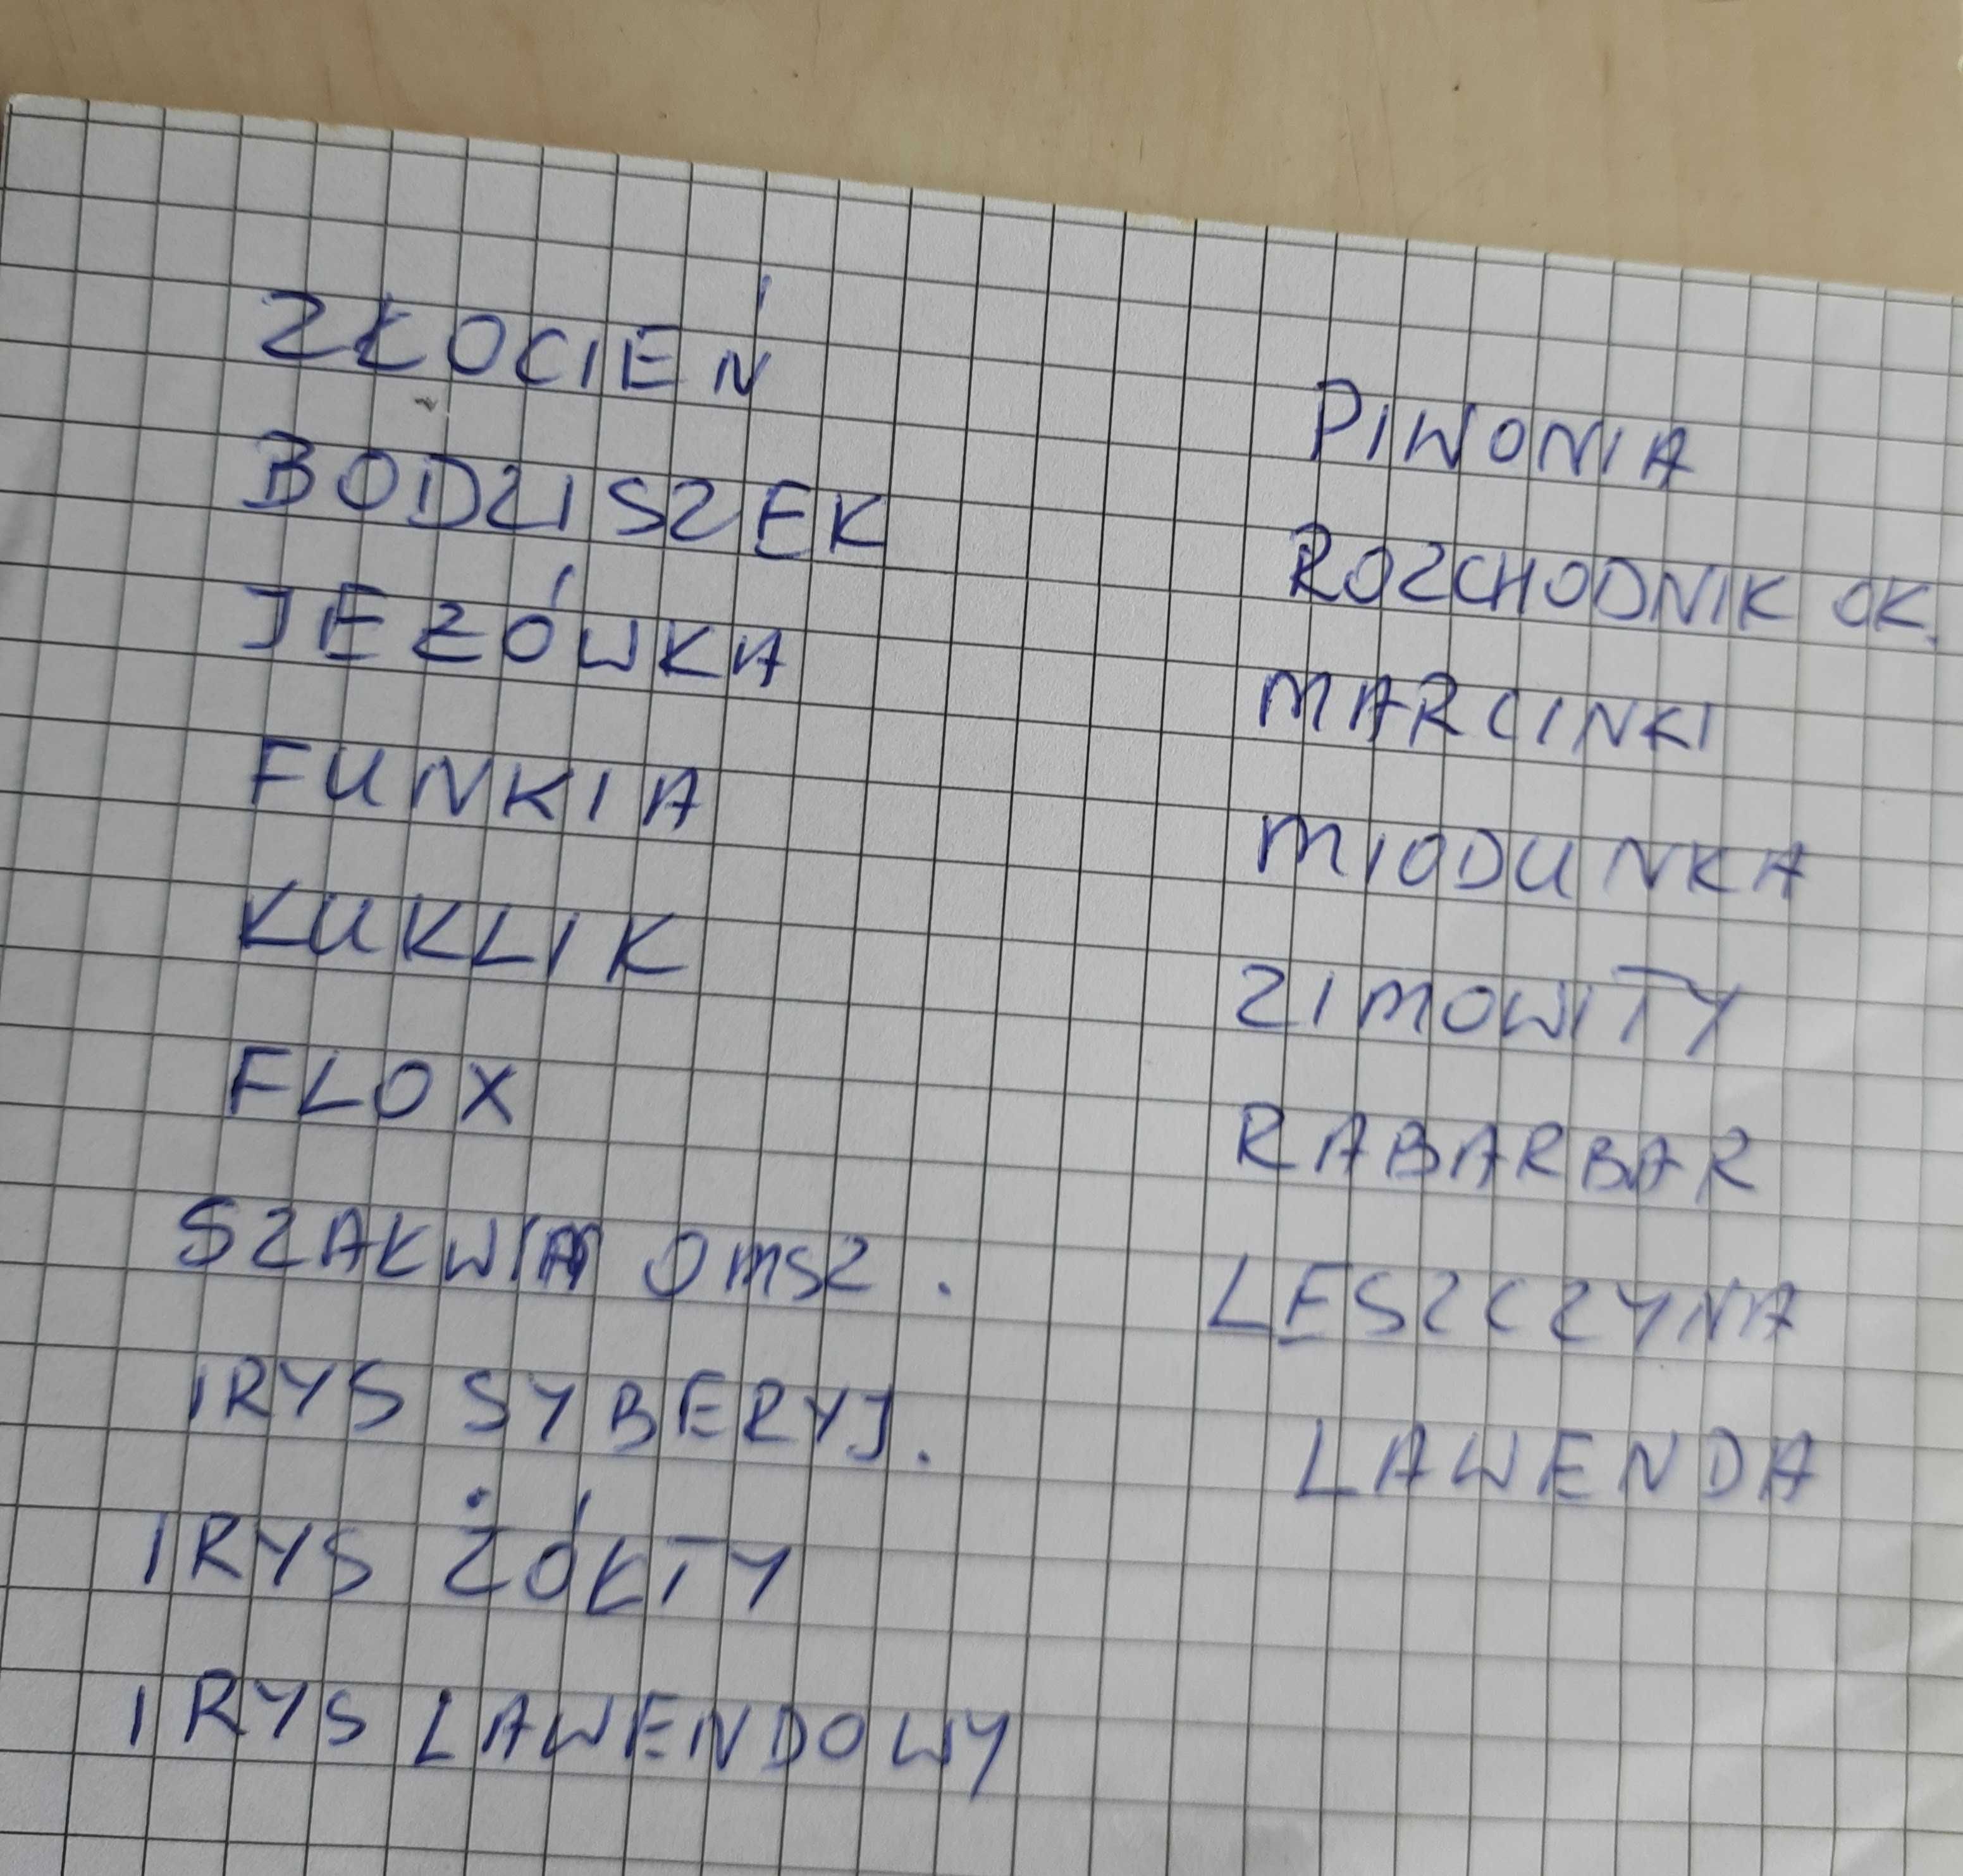 ZŁOCIEŃ
BODZISZEK
JEŻÓWKA
FUNKIA
KUKLIK
FLOX
SZAKWIA OMSZ.
IRYS SYBERYJ.
IRYS ŻÓŁTY
IRYS LAWENDOWY
PIWONIA
ROZCHODNIK OK.
MARCINKI
MIODUNKA
ZIMOWITY
RABARBAR
LESZCZYNA
LAWENDA